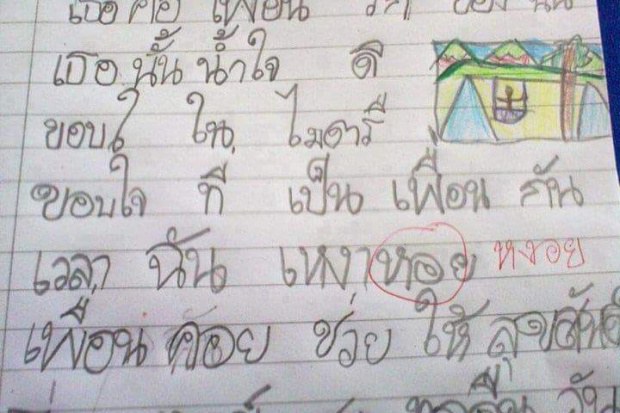 เธอ คือ เพื่อน ของ ฉัน
เธอ นั้น น้ำใจ ดี
ขอบใ ใน ไมตรี
ขอบใจ ที่ เป็น เพื่อน กัน
เวลา ฉัน เหงาหอย หงอย
เพื่อน ค้อย ช่วย ให้